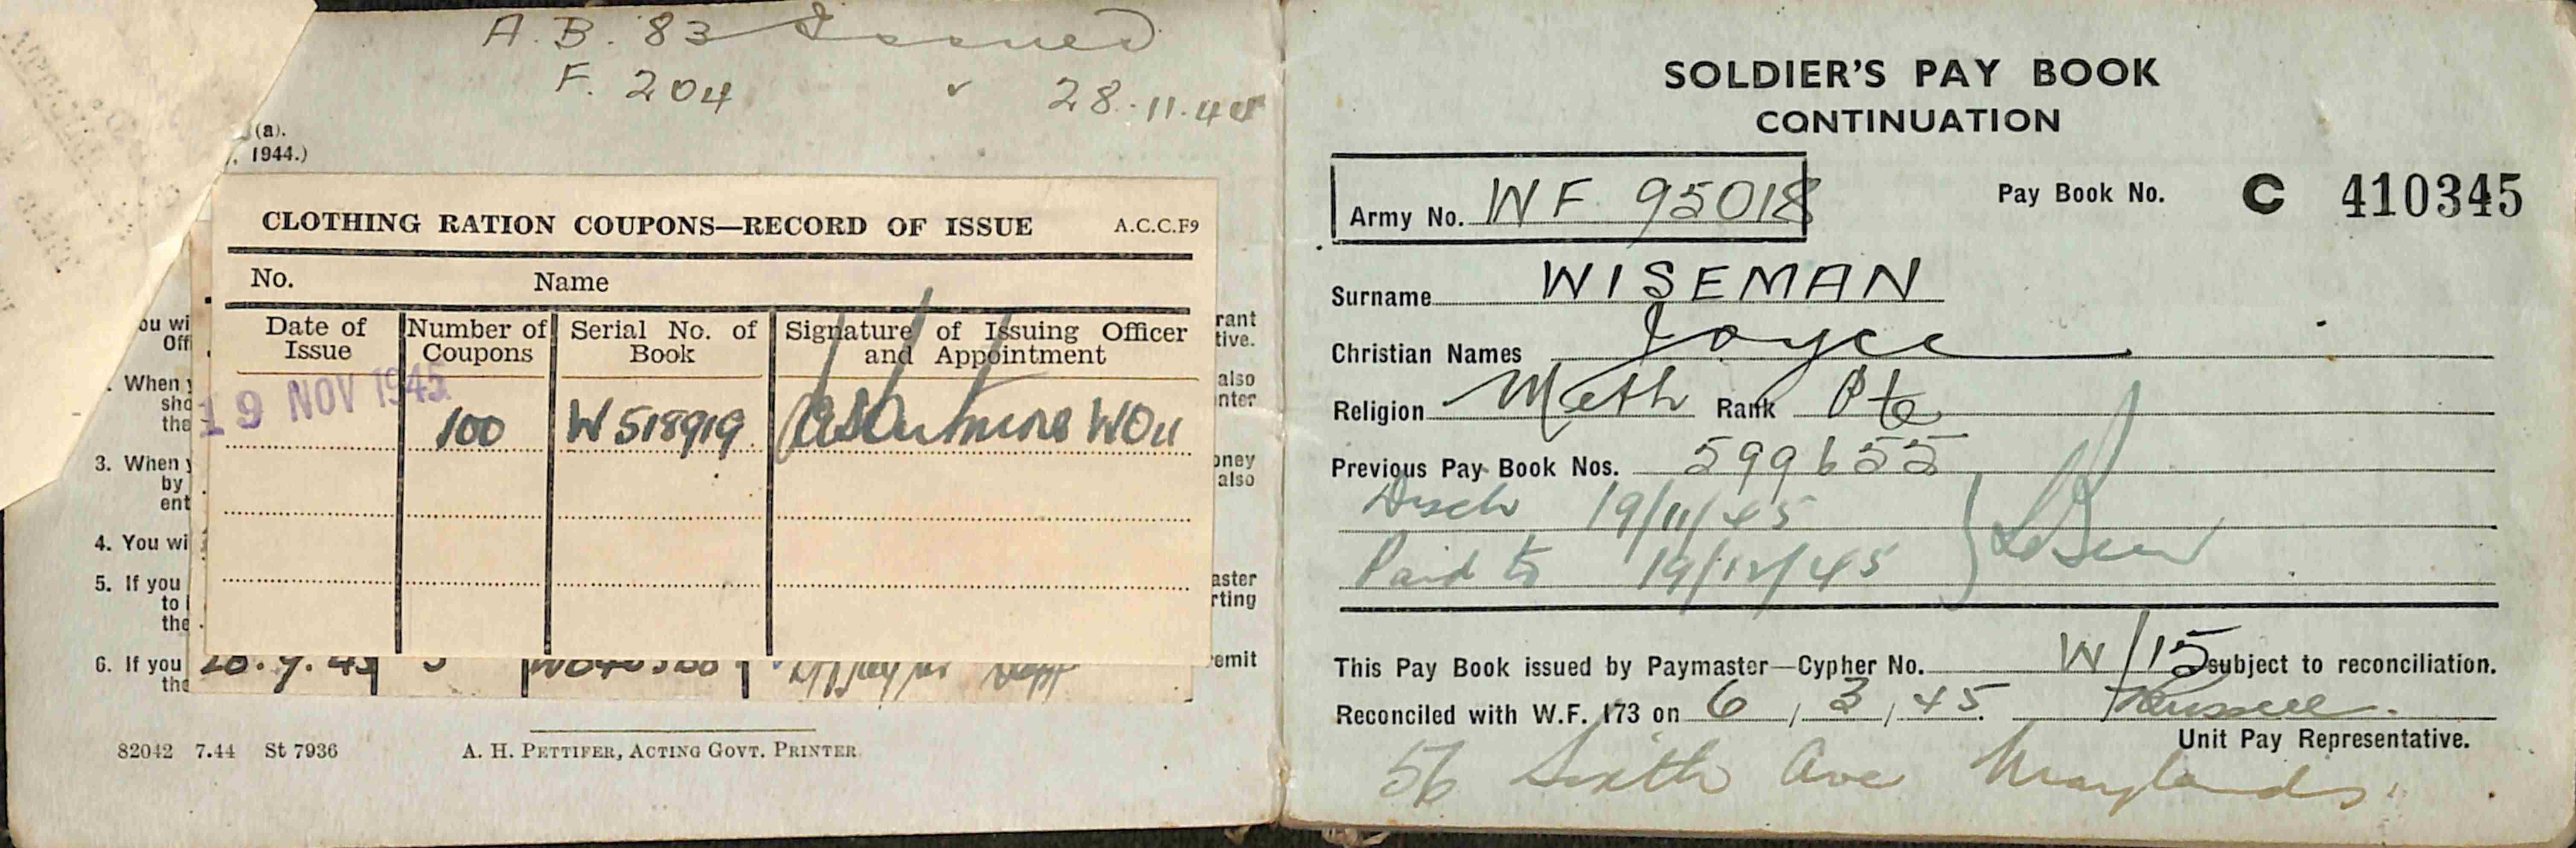 A.B. 83 Issued
F. 204 ✓ 28.11.4
(a).
, 1944.)
CLOTHING RATION COUPONS—RECORD OF ISSUE A.C.C.F9
No. Name
Date of Issue Number of Coupons Serial No. of Book Signature of Issuing Officer and Appointment
19 NOV 1945 100 W518919 WOII
ou wi
Off
rant
tive.
. When y
sho
the
also
nter
3. When y
by
ent
oney
also
4. You wi
5. If you
to
the
aster
rting
6. If you
the
emit
82042 7.44 St 7936 A. H. PETTIFER, ACTING GOVT. PRINTER
SOLDIER'S PAY BOOK
CONTINUATION
Army No. WF 95018 Pay Book No. C 410345
Surname WISEMAN
Christian Names Joyce
Religion Meth Rank Pte
Previous Pay Book Nos. 599655
Disch 19/11/45
Paid to 19/12/45
This Pay Book issued by Paymaster—Cypher No. W/15 subject to reconciliation.
Reconciled with W.F. 173 on 6/3/45 Russell.
Unit Pay Representative.
56 Sixth Ave Maylands.